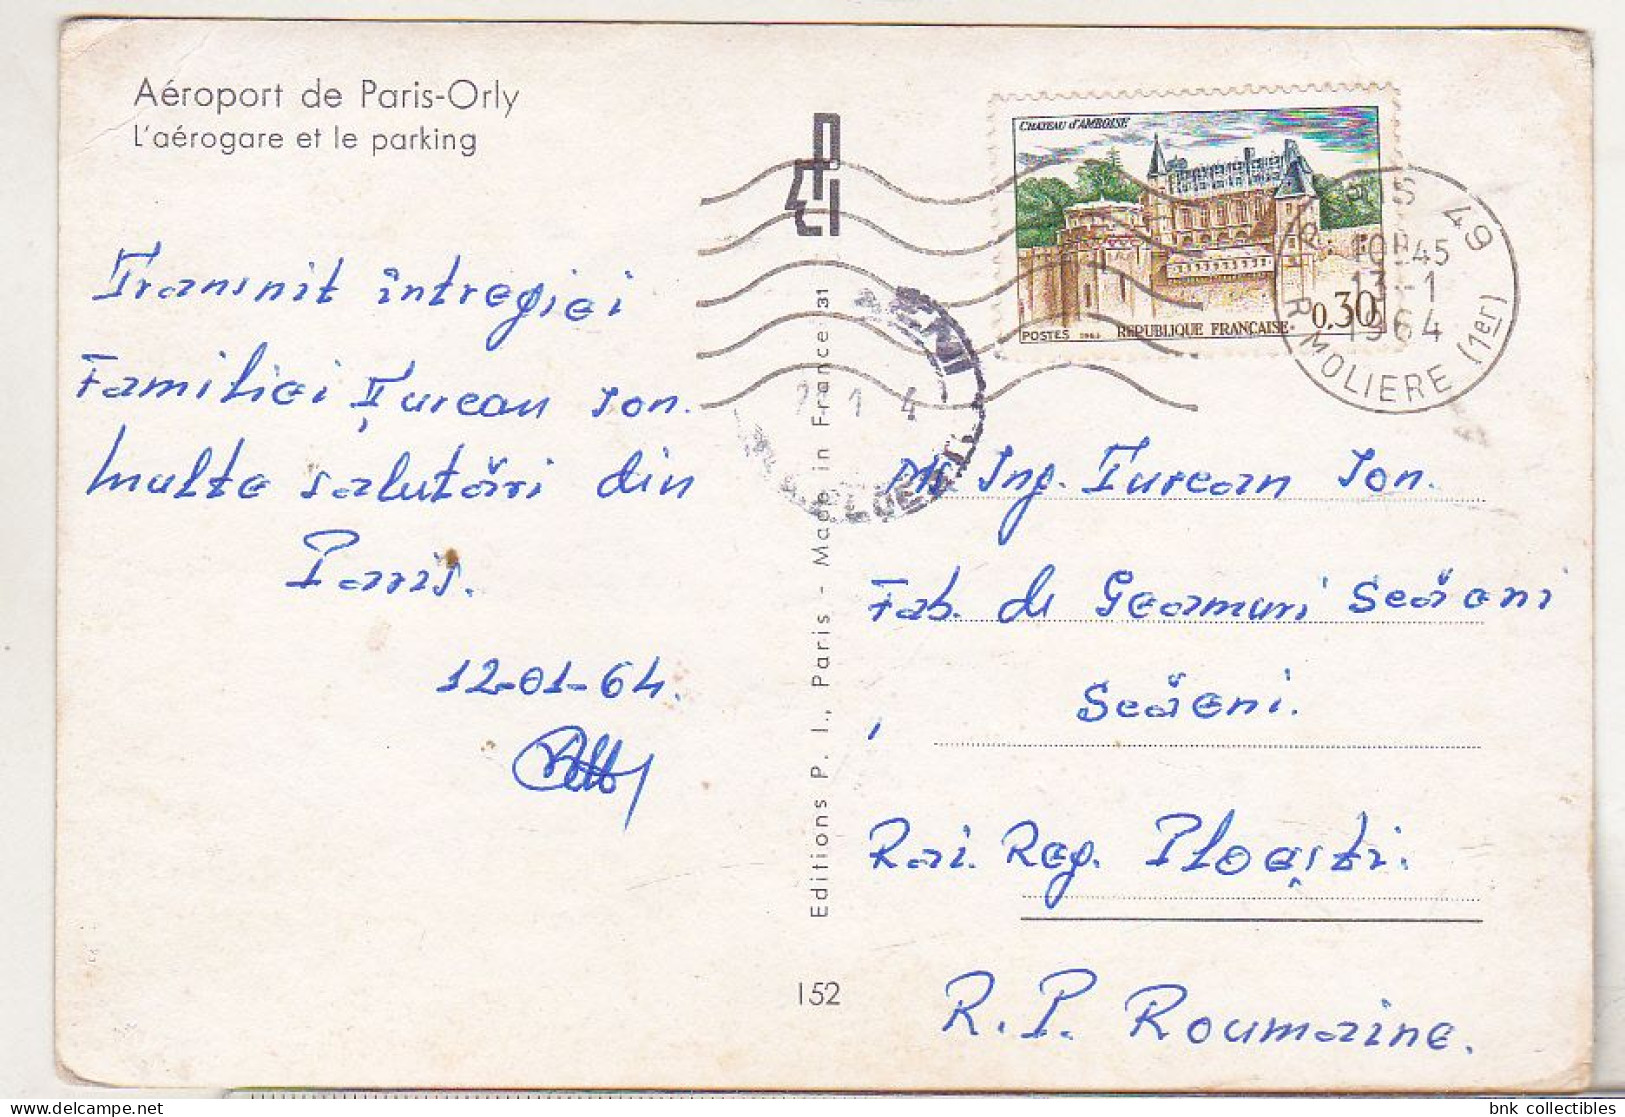 Aéroport de Paris-Orly
L'aérogare et le parking
Transmit întregiei
Familiei Țurcan Ion.
Multe salutări din
Paris.
12-01-64.
Editions P. I., Paris - Made in France 31
152
CHATEAU d'AMBOISE
POSTES 1963 REPUBLIQUE FRANÇAISE 0,30
PARIS 49
10H45
13-1
1964
R. MOLIERE (1er)
ENI
1 4
Ing. Turcan Ion.
Fab. de Geamuri Scăeni
Scăeni.
Rai. Reg. Ploești.
R. P. Roumaine.
bnk collectibles